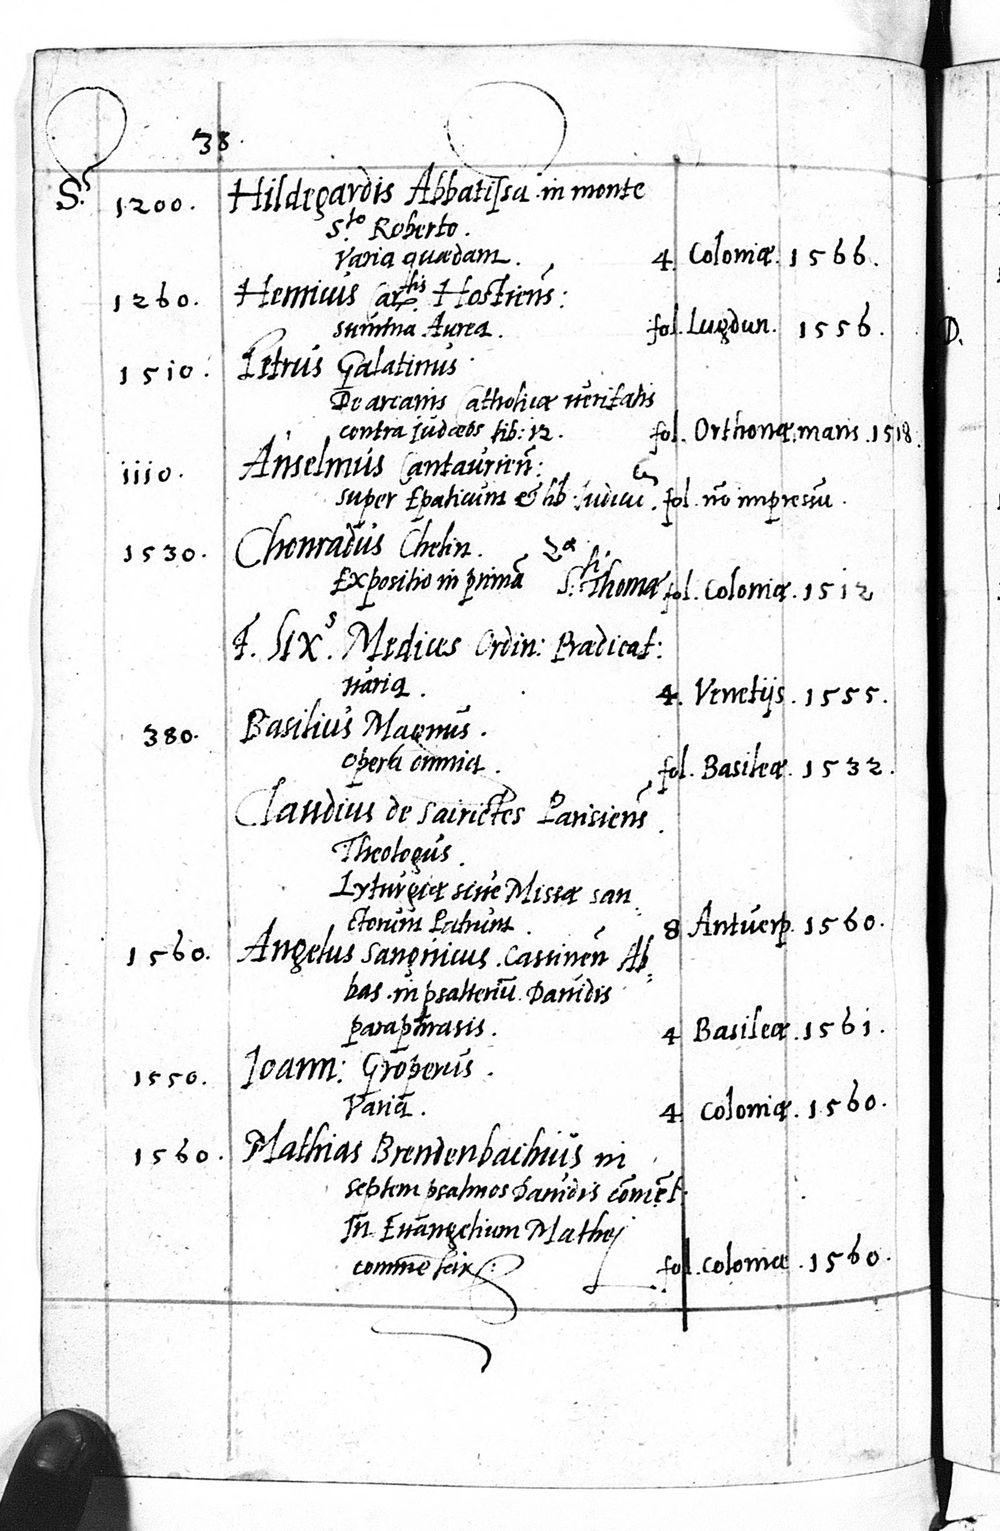 38.
S. 1200. Hildegardis Abbatissa in monte
S.to Roberto.
Varia quædam. 4. Coloniæ. 1566.
1260. Henricus Car.lis Hostiens:
summa Aurea. fol. Lugdun. 1556.
1510. Petrus Galatinus
De arcanis Catholicæ veritatis
contra Judæos lib: 12. fol. Orthonæ. maris. 1518.
1110. Anselmus Cantaurien:
super Epaticum & lib: Judicu fol. nō impressu.
1530. Chonradus Chelin.
Expositio in primā 2æ S.ti Thomæ fol. Coloniæ. 1512
F. Sixs. Medices Ordin: Prædicat:
varia. 4. Venetijs. 1555.
380. Basilius Magnus.
opera omnia. fol. Basileæ. 1532.
Claudius de Sainctes Parisiens.
Theologus.
Lyturgiæ sive Missæ san
ctorum Patrum. 8 Antuerp. 1560.
1560. Angelus Sangrinus. Cassinen Ab
bas. in psalteriū Davidis
paraphrasis. 4 Basileæ. 1561.
1550. Joann: Groperus.
Varia. 4. Coloniæ. 1560.
1560. Mathias Brendenbachius in
septem psalmos Davidis cōmēt.
In Evangelium Mathej
fol. Coloniæ. 1560.